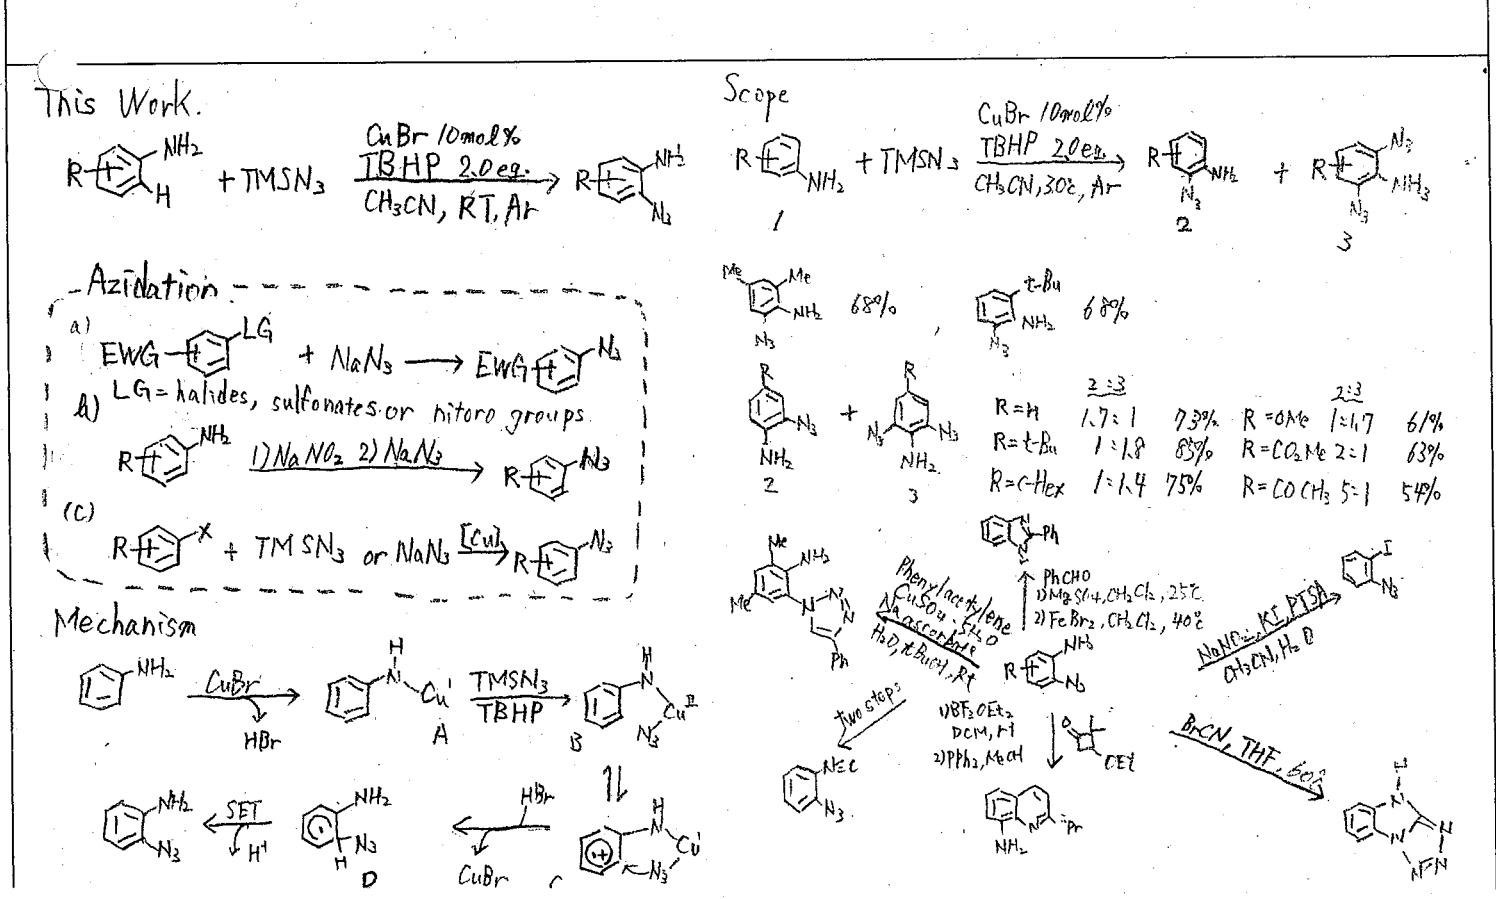 This Work.
R
NH2
H
+ TMSN3
CuBr 10mol%
TBHP 2.0eq.
CH3CN, RT, Ar
R
NH2
N3
Azidation
a)
EWG
LG
+ NaN3
EWG
N3
LG = halides, sulfonates or nitoro groups
b)
R
NH2
1) NaNO2 2) NaN3
R
N3
(c)
R
X
+ TMSN3 or NaN3
[Cu]
R
N3
Mechanism
NH2
CuBr
HBr
H
N
CuI
A
TMSN3
TBHP
H
N
CuII
N3
B
H
N
CuI
N3
+
C
HBr
CuBr
NH2
N3
H
D
SET
H+
NH2
N3
Scope
R
NH2
1
+ TMSN3
CuBr 10mol%
TBHP 2.0eq.
CH3CN, 30℃, Ar
R
NH2
N3
2
+
R
N3
NH3
N3
3
Me
Me
NH2
N3
68%
,
t-Bu
NH2
N3
68%
R
N3
NH2
2
+
R
N3
N3
NH2
3
2:3
2:3
R=H 1.7:1 73% R=OMe 1:1.7 61%
R=t-Bu 1:1.8 85% R=CO2Me 2:1 63%
R=c-Hex 1:1.4 75% R=COCH3 5:1 54%
N
Ph
N
PhCHO
1) MgSO4, CH2Cl2, 25℃
2) FeBr2, CH2Cl2, 40℃
I
N3
NaNO2, KI, PTSA
CH3CN, H2O
Me
NH2
Me
N
N
N
Ph
Phenylacetylene
CuSO4·5H2O
Na ascorbate
H2O, tBuOH, Rt
R
NH2
N3
two steps
N≡C
N3
1) BF3OEt2
DCM, rt
2) PPh3, MeOH
O
OEt
N
iPr
NH2
BrCN, THF, 60℃
N
N
N
N
N